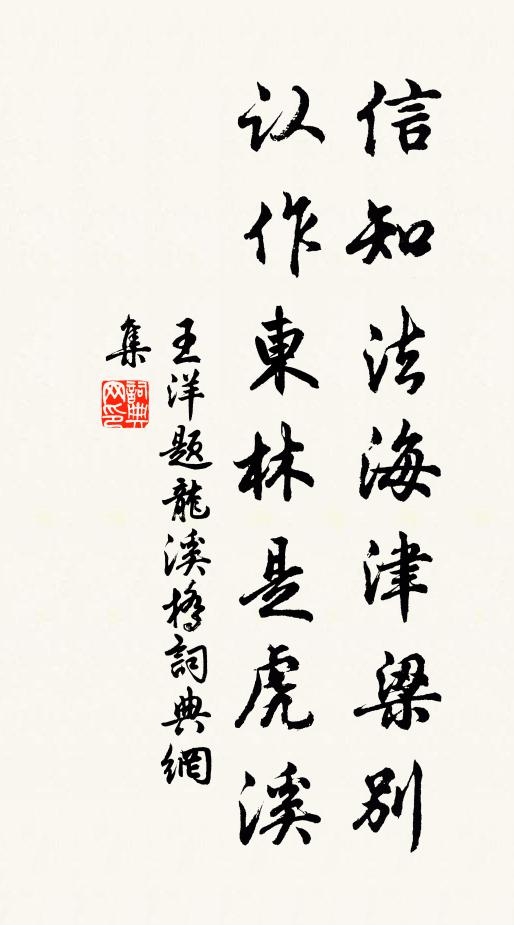 信知法海津梁别
认作東林是虎溪
王洋题龍溪橋詞典網
集
詞典网印